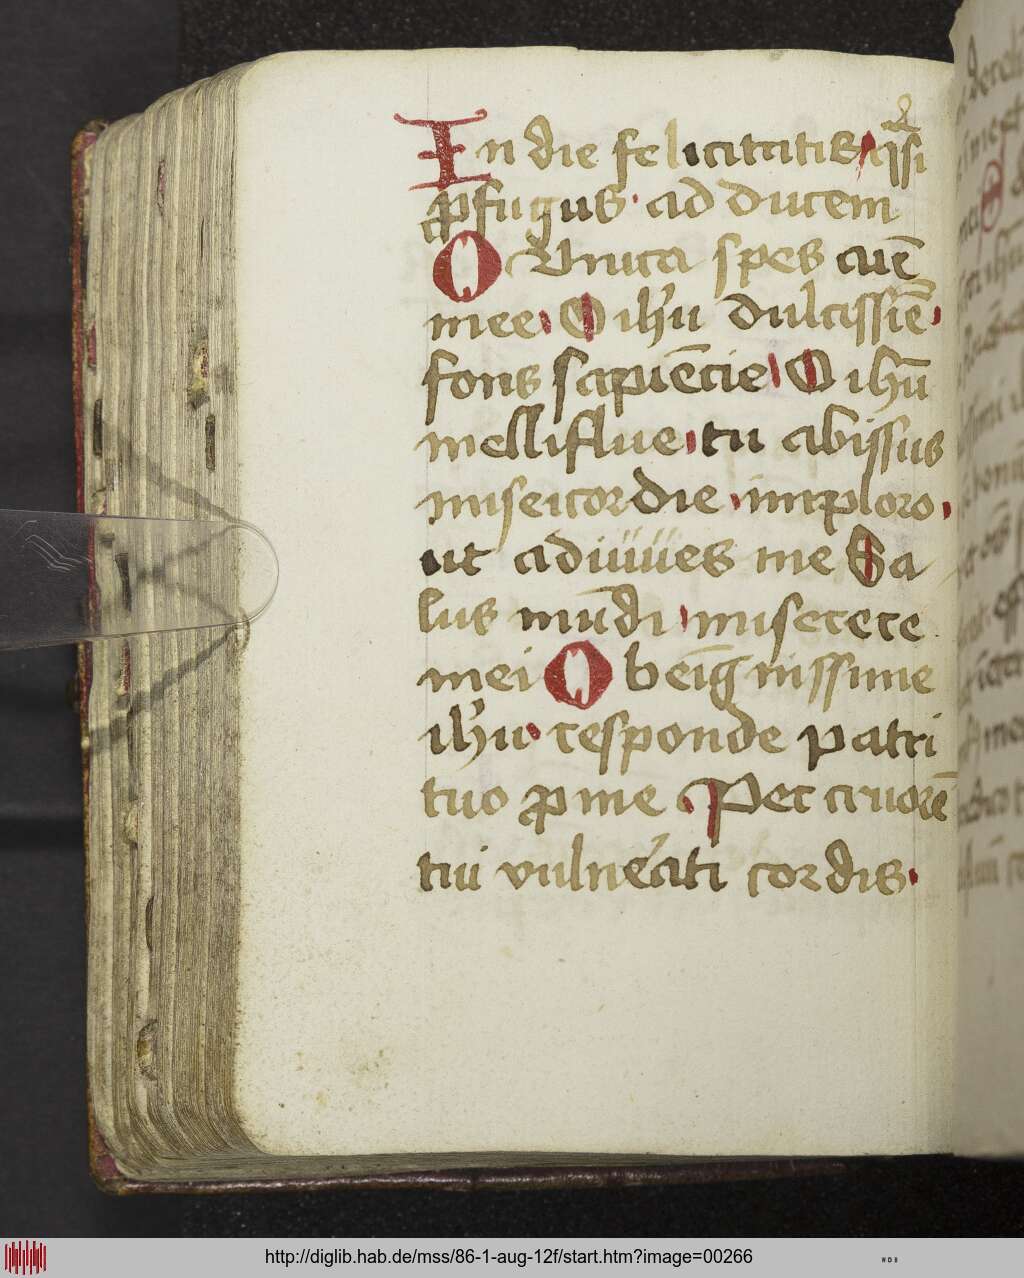 In die felicitatis qͣsi
ꝓfugus · ad ducem
O Vnica spes aīe
mee · O ihu dulcissīe ·
fons sapiēcie O ihū
melliflue · tu abissus
misericordie · imploro ·
ut adiuues me Sa
lus mūdi · miserere
mei O beīgnissime
ihu · responde patri
tuo ꝓ me · Per cruorē
tui vulnerati cordis ·
http://diglib.hab.de/mss/86-1-aug-12f/start.htm?image=00266